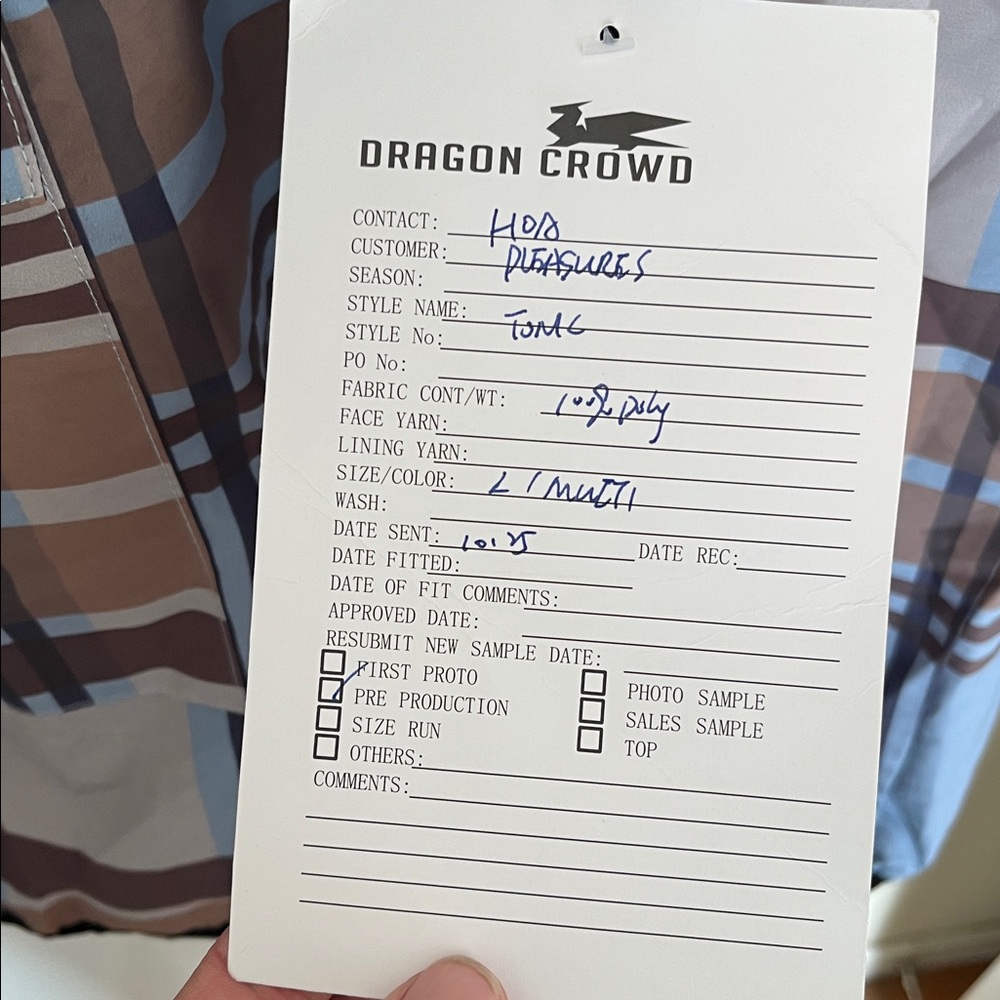 DRAGON CROWD
CONTACT: HOA
CUSTOMER: PLEASURES
SEASON:
STYLE NAME: TONC
STYLE No:
PO No:
FABRIC CONT/WT: 100% poly
FACE YARN:
LINING YARN:
SIZE/COLOR: L / MULTI
WASH:
DATE SENT: 10.25 DATE REC:
DATE FITTED:
DATE OF FIT COMMENTS:
APPROVED DATE:
RESUBMIT NEW SAMPLE DATE:
FIRST PROTO PHOTO SAMPLE
PRE PRODUCTION SALES SAMPLE
SIZE RUN TOP
OTHERS:
COMMENTS: